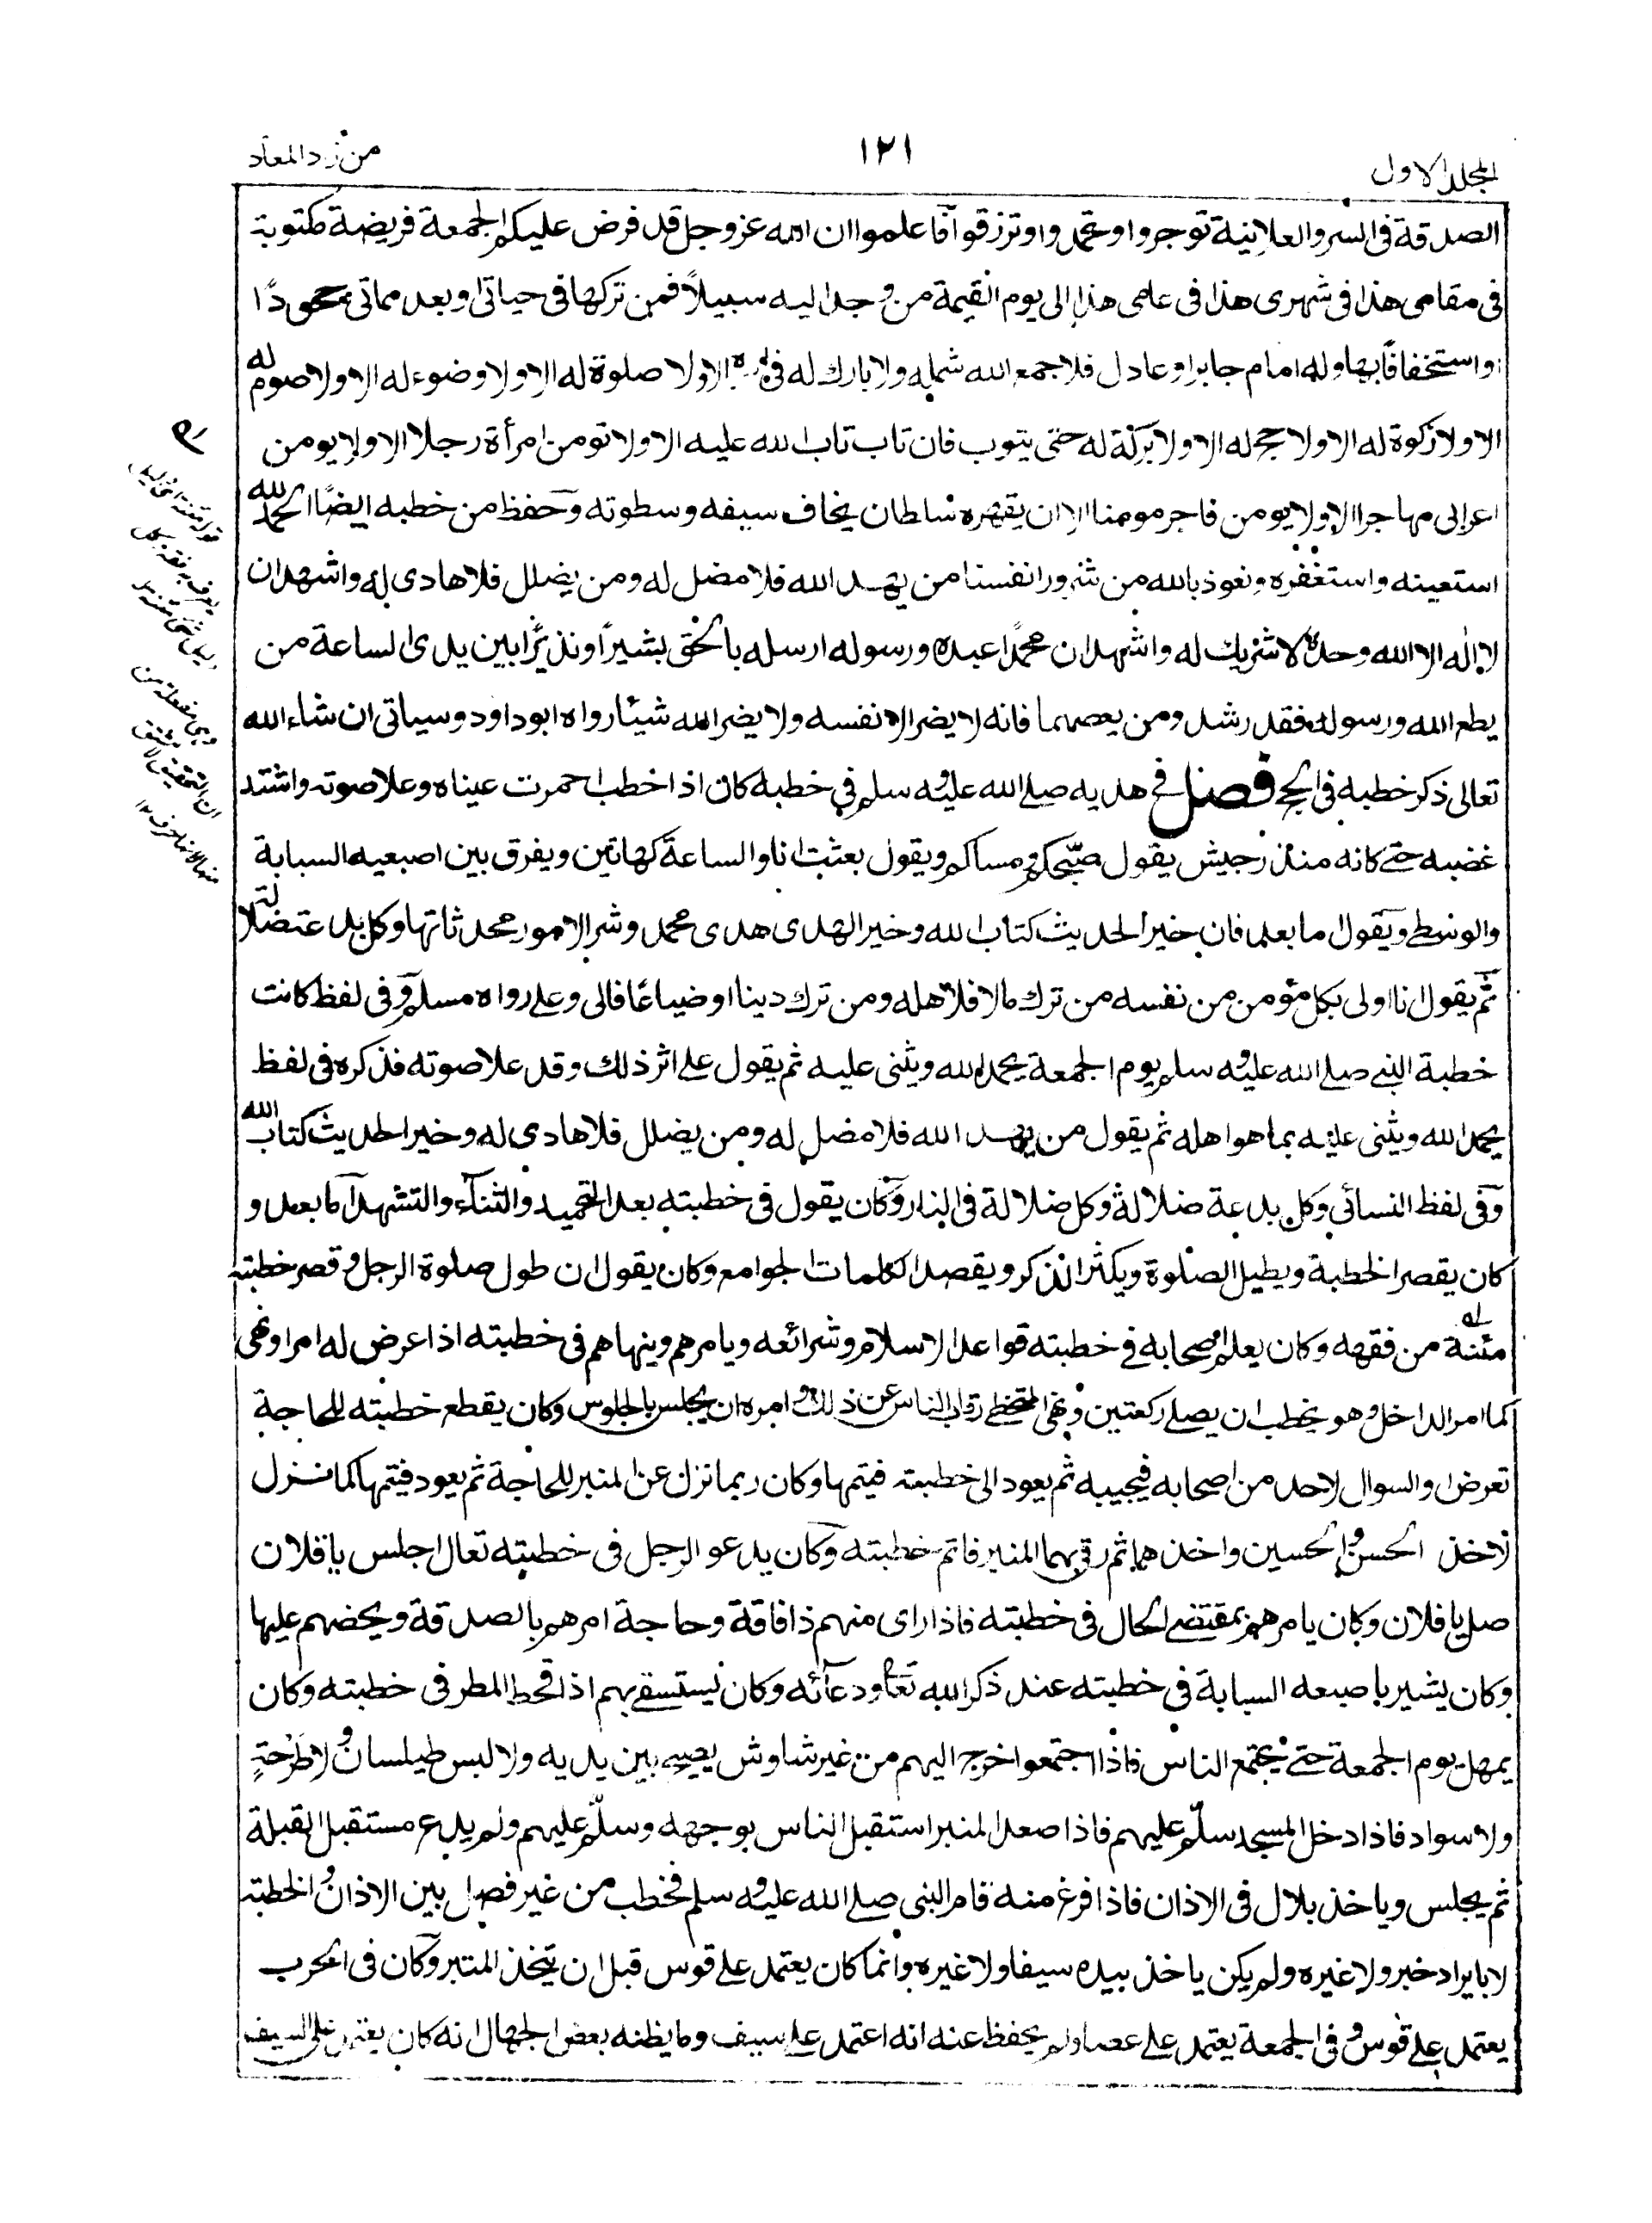 المجلد الاول
١٢١
من زاد المعاد
الصدقة فى السر والعلانية توجروا وتحمدوا وترزقوا فاعلموا ان الله عزوجل قد فرض عليكم الجمعة فريضة مكتوبة
فى مقامى هذا فى شهرى هذا فى عامى هذا الى يوم القيمة من وجد اليه سبيلاً فمن تركها فى حياتى او بعد مماتى جحودًا
او استخفافًا بها وله امام جابر او عادل فلا جمع الله شمله ولا بارك له فى امره الا ولا صلوة له الا ولا وضوء له الا ولا صوم له
الا ولا زكوة له الا ولا حج له الا ولا بركة له حتى يتوب فان تاب تاب الله عليه الا ولا تومن امرأة رجلا الا ولا يومن
اعرابى مهاجرا الا ولا يومن فاجر مومنا الا ان يقهره سلطان يخاف سيفه وسطوته وحفظ من خطبه ايضًا الحمد لله
استعينه واستغفره ونعوذ بالله من شرور انفسنا من يهد الله فلا مضل له ومن يضلل فلا هادى له واشهد ان
لا اله الا الله وحده لا شريك له واشهد ان محمدًا عبده ورسوله ارسله بالحق بشيرًا ونذيرًا بين يدى الساعة من
يطع الله ورسوله فقد رشد ومن يعصهما فانه لا يضر الا نفسه ولا يضر الله شيئا رواه ابو داود وسياتى ان شاء الله
تعالى ذكر خطبه فى الحج فصل فى هديه صلى الله عليه وسلم فى خطبه كان اذا خطب احمرت عيناه وعلا صوته واشتد
غضبه حتى كانه منذر جيش يقول صبّحكم ومساكم ويقول بعثت انا والساعة كهاتين ويفرق بين اصبعيه السبابة
والوسطى ويقول اما بعد فان خير الحديث كتاب الله وخير الهدى هدى محمد وشر الامور محدثاتها وكل بدعة ضلالة
ثم يقول انا اولى بكل مؤمن من نفسه من ترك مالا فلاهله ومن ترك دينا او ضياعًا فالى وعلى رواه مسلم وفى لفظ كانت
خطبة النبى صلى الله عليه وسلم يوم الجمعة يحمد الله ويثنى عليه ثم يقول على اثر ذلك وقد علا صوته فذكره فى لفظ
يحمد الله ويثنى عليه بما هو اهله ثم يقول من يهد الله فلا مضل له ومن يضلل فلا هادى له وخير الحديث كتاب الله
وفى لفظ النسائى وكل بدعة ضلالة وكل ضلالة فى النار وكان يقول فى خطبته بعد التحميد والثناء والتشهد اما بعد و
كان يقصر الخطبة ويطيل الصلوة ويكثر الذكر ويقصد الكلمات الجوامع وكان يقول ان طول صلوة الرجل وقصر خطبته
مئنة من فقهه وكان يعلم اصحابه فى خطبته قواعد الاسلام وشرائعه ويامرهم وينهاهم فى خطبته اذا عرض له امر او نهى
كما امر الداخل وهو يخطب ان يصلى ركعتين ونهى المتخطى رقاب الناس عن ذلك وامره ان يجلس بالجلوس وكان يقطع خطبته للحاجة
تعرض او السوال لاحد من اصحابه فيجيبه ثم يعود الى خطبته فيتمها وكان ربما نزل عن المنبر للحاجة ثم يعود فيتمها كما نزل
لاخذ الحسن والحسين واخذهما ثم رقى بهما المنبر فاتم خطبته وكان يدعو الرجل فى خطبته تعال اجلس يا فلان
صل يا فلان وكان يامرهم بمقتضى الحال فى خطبته فاذا راى منهم ذا فاقة وحاجة امرهم بالصدقة ويحضهم عليها
وكان يشير باصبعه السبابة فى خطبته عند ذكر الله تعالى ودعائه وكان يستسقى بهم اذا قحط المطر فى خطبته وكان
يمهل يوم الجمعة حتى يجتمع الناس فاذا اجتمعوا خرج اليهم من غير شاوش يصيح بين يديه ولا لبس طيلسان ولا طرحة
ولا سواد فاذا دخل المسجد سلّم عليهم فاذا صعد المنبر استقبل الناس بوجهه وسلّم عليهم ولم يدع مستقبل القبلة
ثم يجلس وياخذ بلال فى الاذان فاذا فرغ منه قام النبى صلى الله عليه وسلم فخطب من غير فصل بين الاذان والخطبة
لا بايراد خبر ولا غيره ولم يكن ياخذ بيده سيفا ولا غيره وانما كان يعتمد على قوس قبل ان يتخذ المنبر وكان فى الحرب
يعتمد على قوس وفى الجمعة يعتمد على عصا ولم يحفظ عنه انه اعتمد على سيف وما يظنه بعض الجهال انه كان يعتمد على السيف